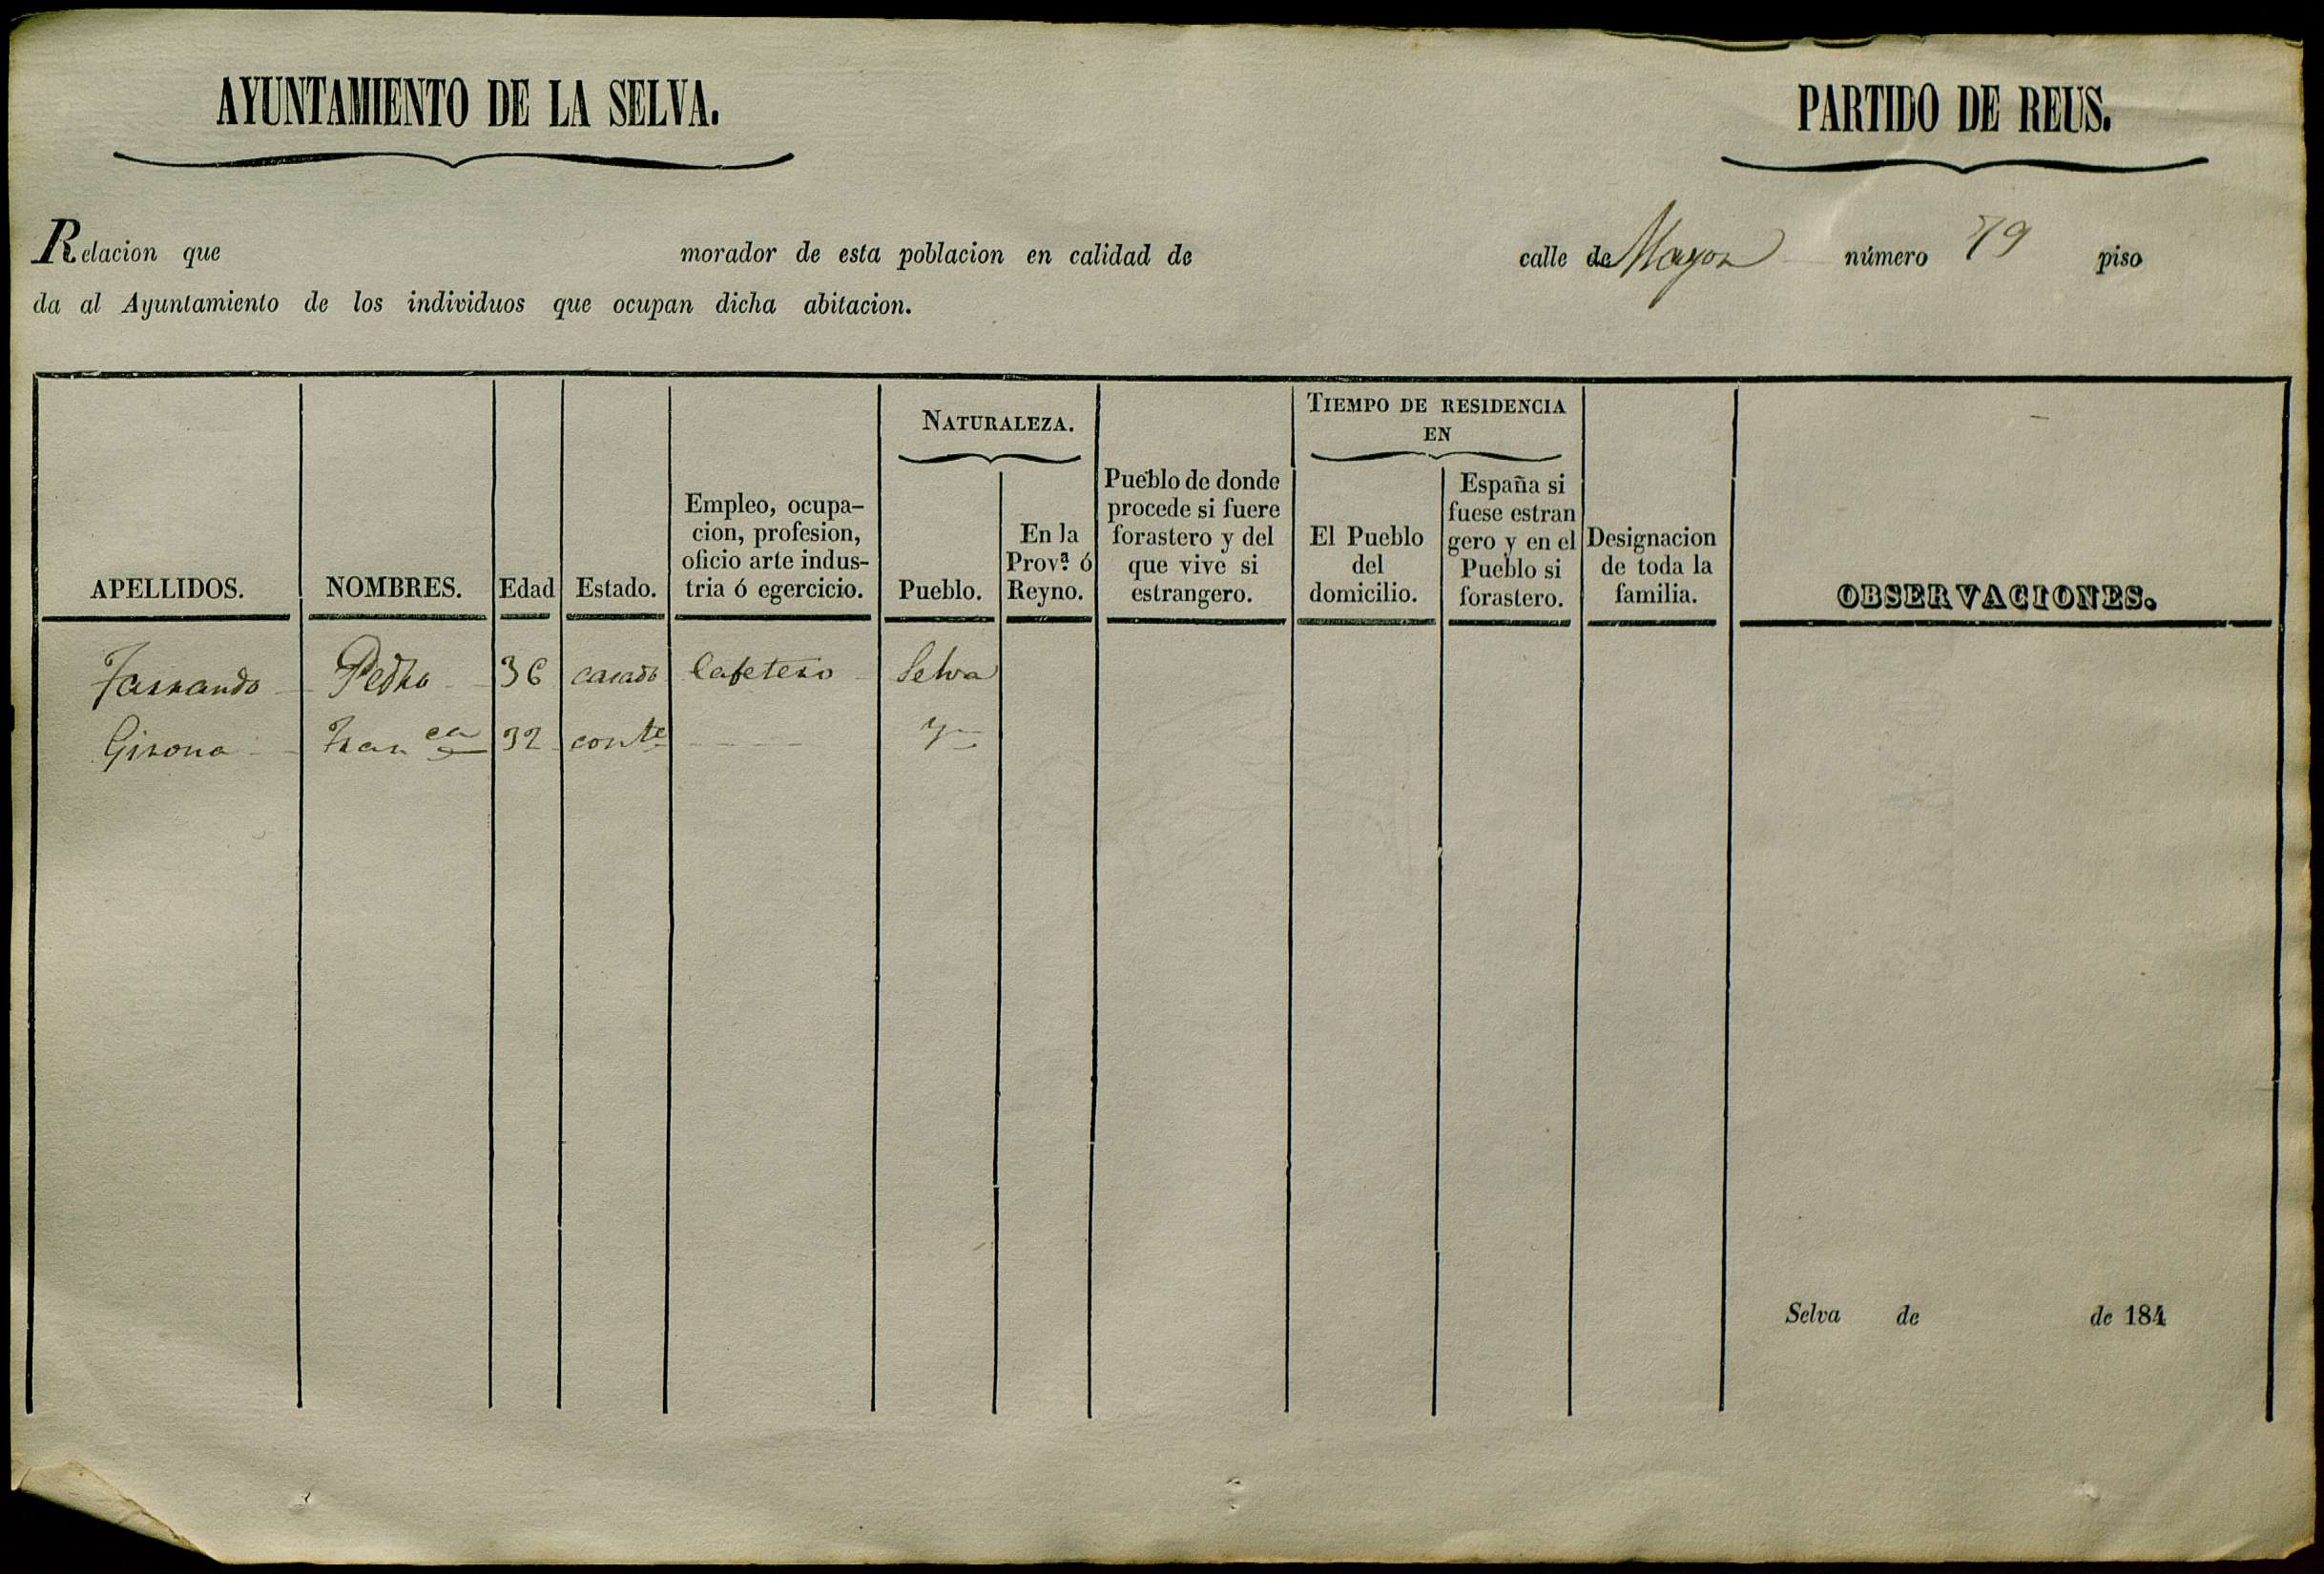 AYUNTAMIENTO DE LA SELVA.
PARTIDO DE REUS.
Relacion que morador de esta poblacion en calidad de calle de Mayor número 79 piso
da al Ayuntamiento de los individuos que ocupan dicha abitacion.
APELLIDOS.
NOMBRES.
Edad
Estado.
Empleo, ocupa-
cion, profesion,
oficio arte indus-
tria ó egercicio.
NATURALEZA.
Pueblo.
En la
Prov.ª ó
Reyno.
Pueblo de donde
procede si fuere
forastero y del
que vive si
estrangero.
TIEMPO DE RESIDENCIA
EN
El Pueblo
del
domicilio.
España si
fuese estran
gero y en el
Pueblo si
forastero.
Designacion
de toda la
familia.
OBSERVACIONES.
Farrando Pedro 36 casado Cafetero Selva
Girona Fran ca 32 conte
Selva de de 184